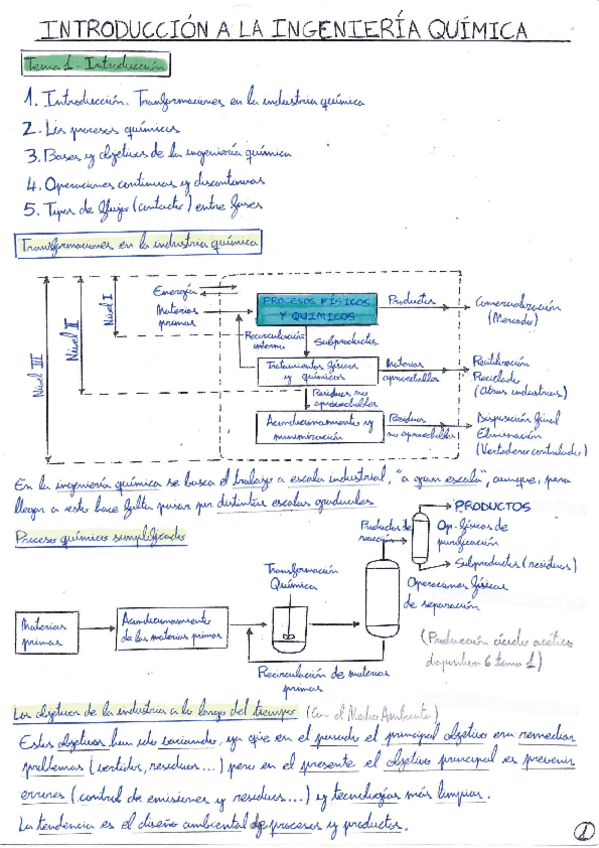 INTRODUCCIÓN A LA INGENIERÍA QUÍMICA
Tema 1. Introducción
1. Introducción. Transformaciones en la industria química
2. Los procesos químicos
3. Bases y objetivos de la ingeniería química
4. Operaciones continuas y discontinuas
5. Tipos de flujo (contacto) entre fases
Transformaciones en la industria química
Nivel III
Nivel II
Nivel I
Energía
Materias primas
PROCESOS FÍSICOS Y QUIMICOS
Productos
Comercialización (Mercado)
Recirculación interna
Subproductos
Tratamientos físicos y químicos
Materias aprovechables
Reutilización
Reciclado
(Otras industrias)
Residuos no aprovechables
Acondicionamiento y minimización
Residuos no aprovechables
Disposición final
Eliminación
(Vertedero controlado)
En la ingeniería química se busca el trabajo a escala industrial, "a gran escala", aunque, para
llegar a esto hace falta pasar por distintas escalas graduales
Proceso químico simplificado
PRODUCTOS
Productos de reacción
Op. físicas de purificación
Subproductos (residuos)
Transformación Química
Operaciones físicas de separación
Materias primas
Acondicionamiento de las materias primas
(Producción ácido acético
diapositiva 6 tema 1)
Recirculación de materias primas
Los objetivos de la industria a lo largo del tiempo (Con el Medio Ambiente)
Estos objetivos han ido variando, ya que en el pasado el principal objetivo era remediar
problemas (vertidos, residuos...) pero en el presente el objetivo principal es prevenir
errores (control de emisiones y residuos...) y tecnologías más limpias.
La tendencia es el diseño ambiental de procesos y productos.
1